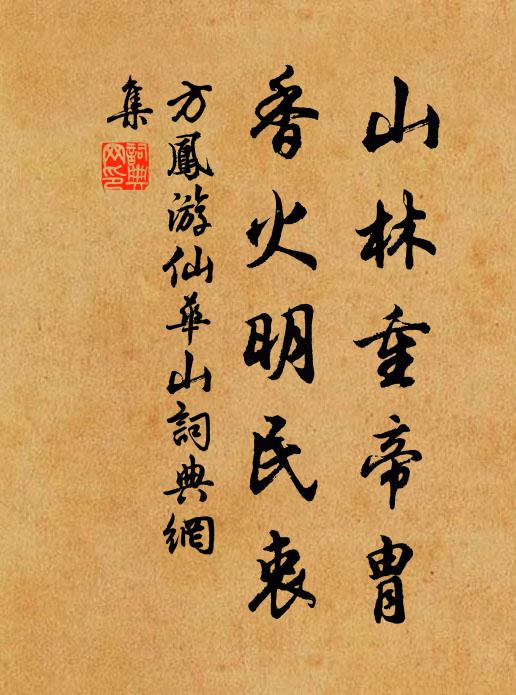 山林重帝胄
香火明民衷
方鳳游仙華山詞典網
集
詞典網印